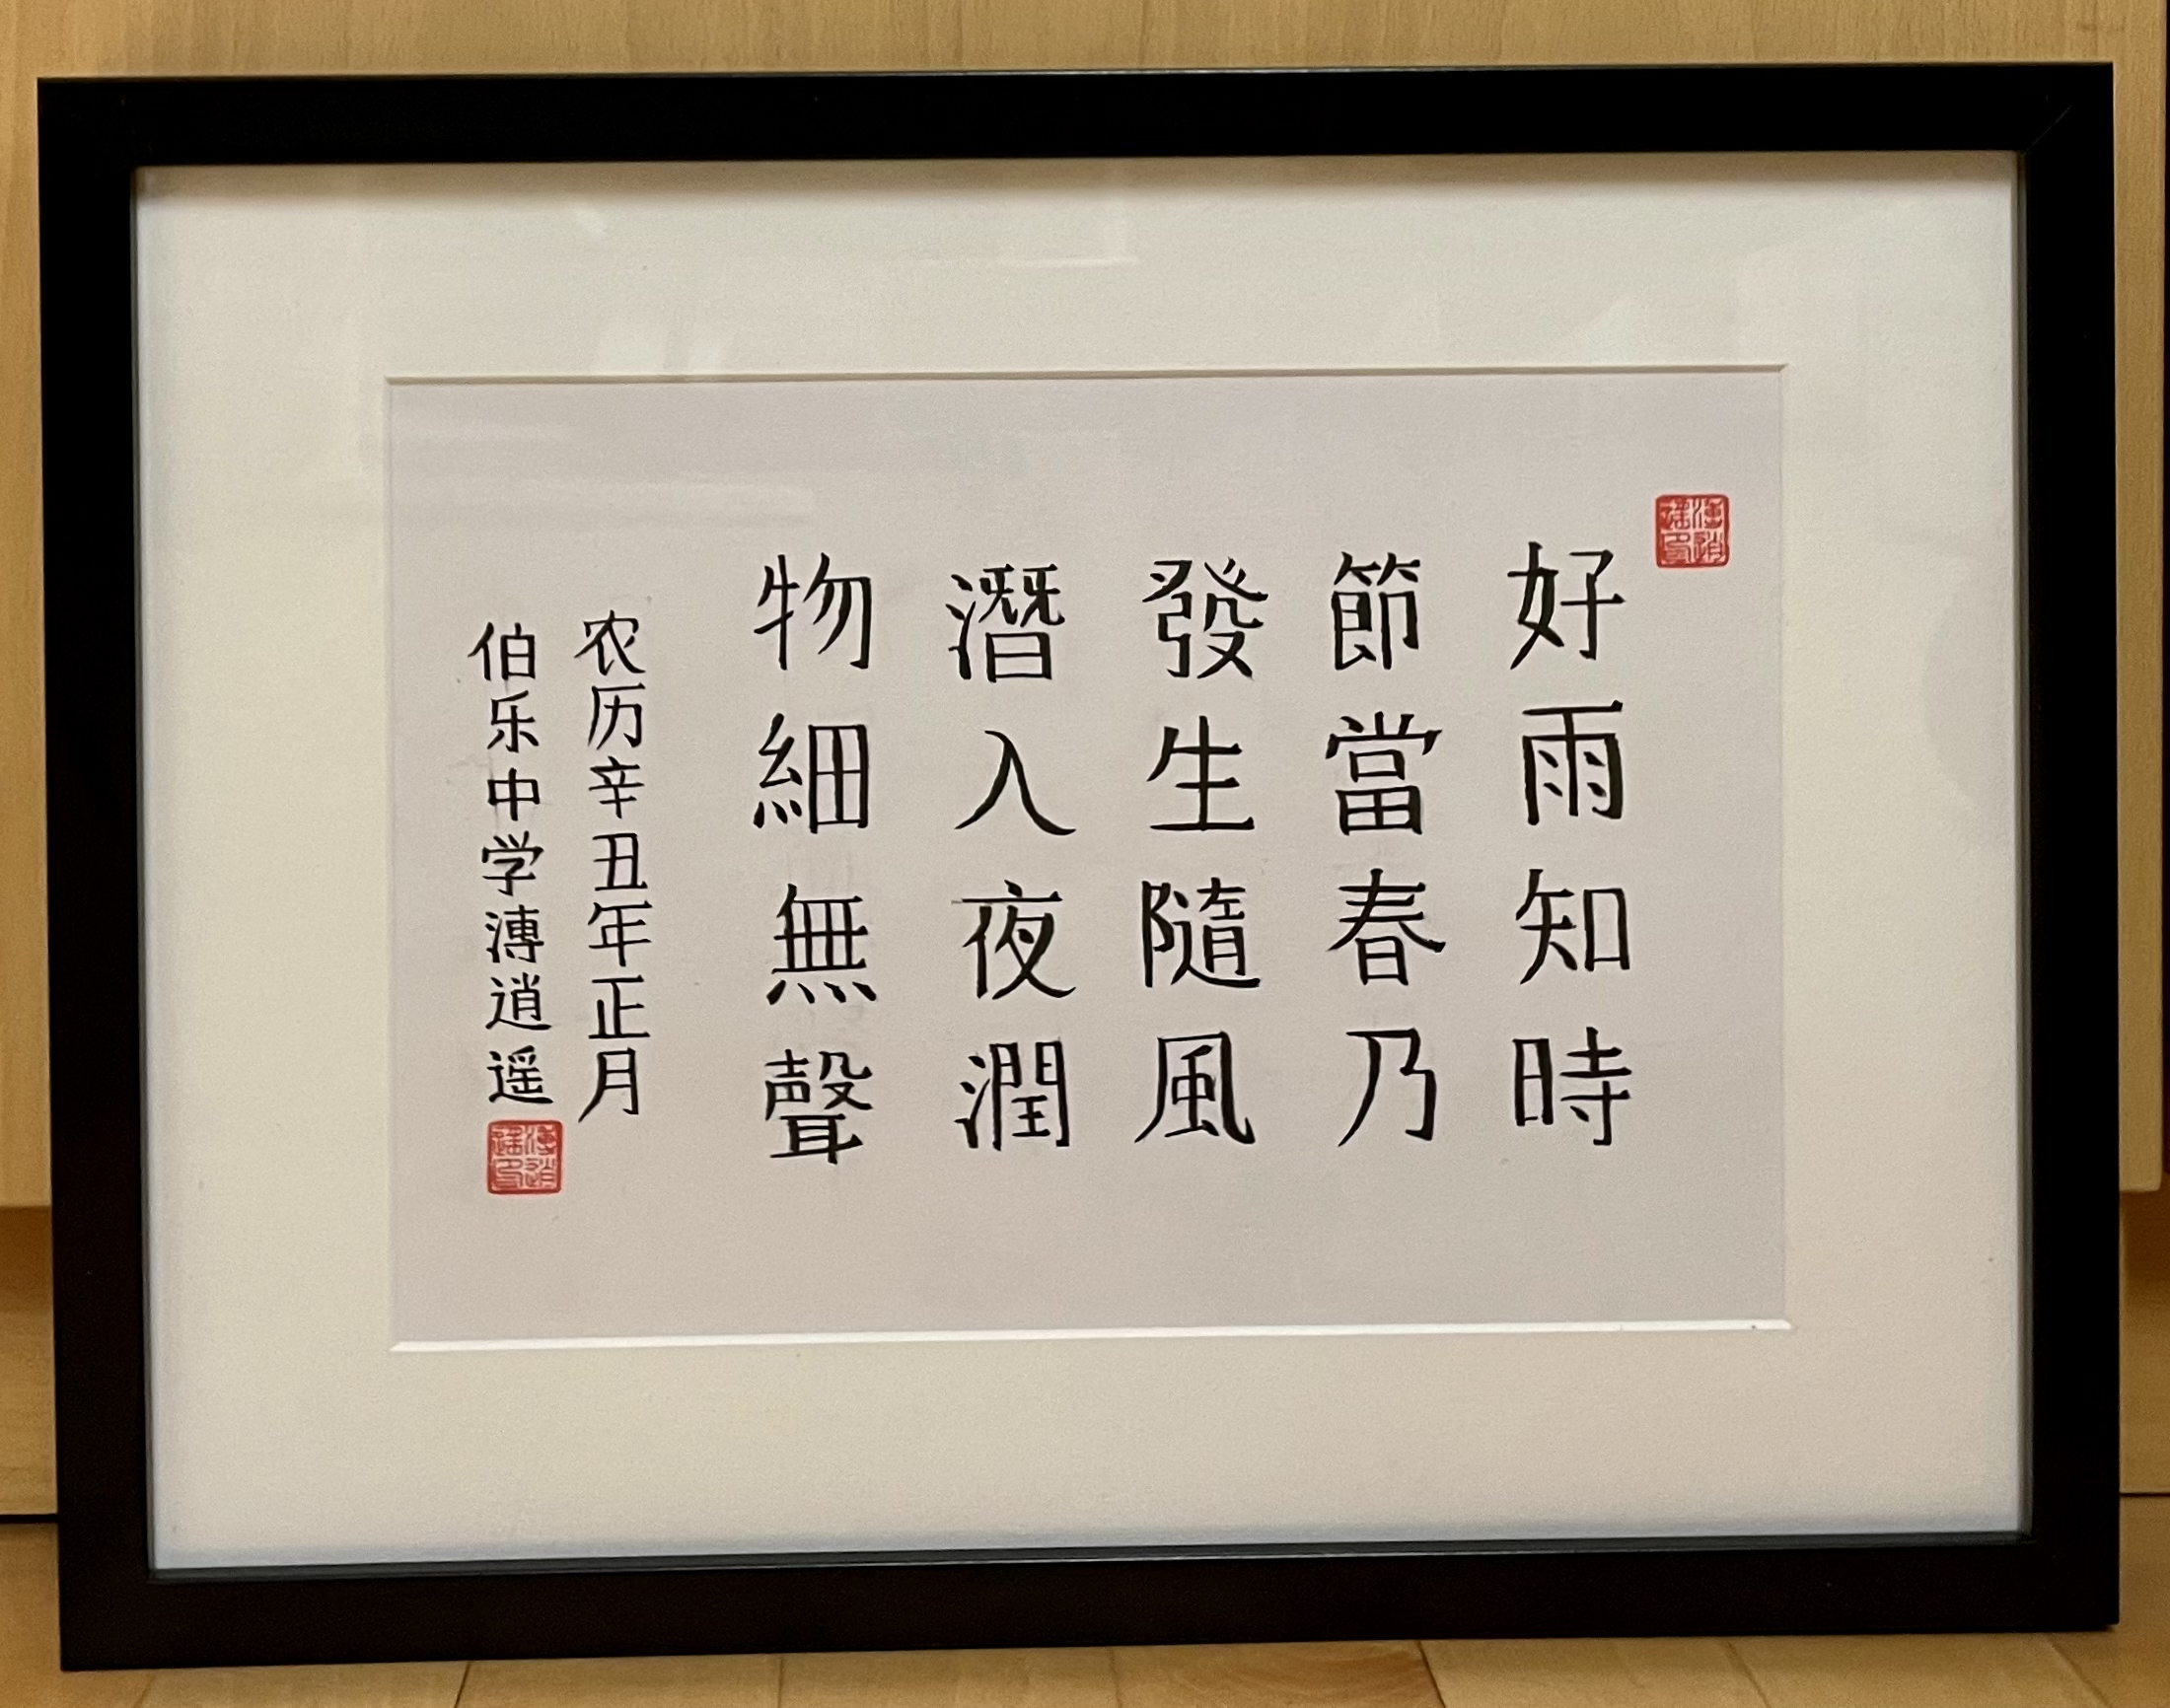 好雨知時
節當春乃
發生隨風
潛入夜潤
物細無聲
农历辛丑年正月
伯乐中学溥逍遥